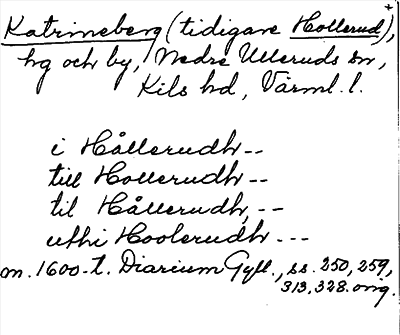 Katrineberg (tidigare Hollerud),
hg och by, Nedre Ulleruds sn,
Kils hd, Värml. l.
i Hållerudh --
till Hollerudh --
til Hållerudh, --
uthi Hoolerudh ---
m. 1600-t. Diarium Gyll., ss. 250, 259,
313, 328. orig.